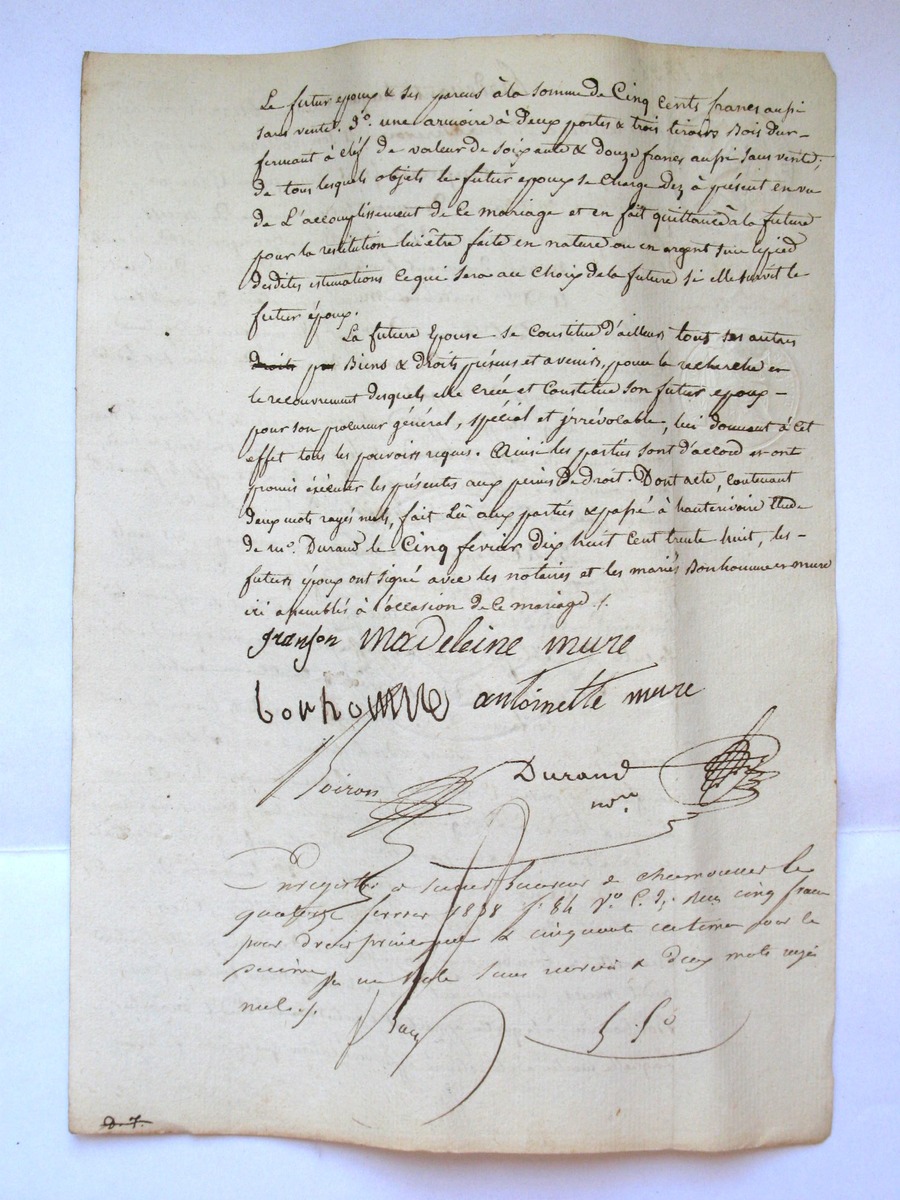 Le futur epoux & ses parens à la somme de Cinq Cents francs aussi
sans vente. 3°. une armoire à Deux portes & trois tiroirs Bois dur -
fermant à clef de valeur de soixante & douze francs aussi sans vente;
de tous lesquels objets le futur epoux se Charge Dez à présent en vu
de L'accomplissement de Ce mariage et en fait quittance à la future
pour la restitution lui être faite en nature ou en argent sur le pied
desdites estimations Ce qui sera au Choix de la future si elle survit le
futur époux.
La future Epouse se Constitue d'ailleurs tous ses autres
droits Biens & droits présens et avenirs, pour la recherche et
le recouvrement desquels elle Créé et Constitue son futur epoux -
pour son procureur général, spécial et jrrévocable, lui donnant à Cet
effet tous les pouvoirs requis. Ainsi les parties sont d'accord et ont
promis éxécuter les présentes aux peines de droit. Dont acte, contenant
deux mots rayés nuls, fait Lû aux parties & passé à hauterivoire Etude
de me. Durand le Cinq fevrier dix huit Cent trente huit, les -
futurs époux ont signé avec les notaires et les mariés Bonhomme et mure
ici assemblés à l'occasion de Ce mariage /.
granjon Madeleine mure
bonhomme antoinette mure
Boiron Durand
nore.
Enregistré à de chamousset le
quatorze fevrier 1838 f° 84 v° C. Reçu cinq francs
pour droit & cinquante centimes pour le
décime sans renvoi & deux mots rayés
nuls /.
D. 7.